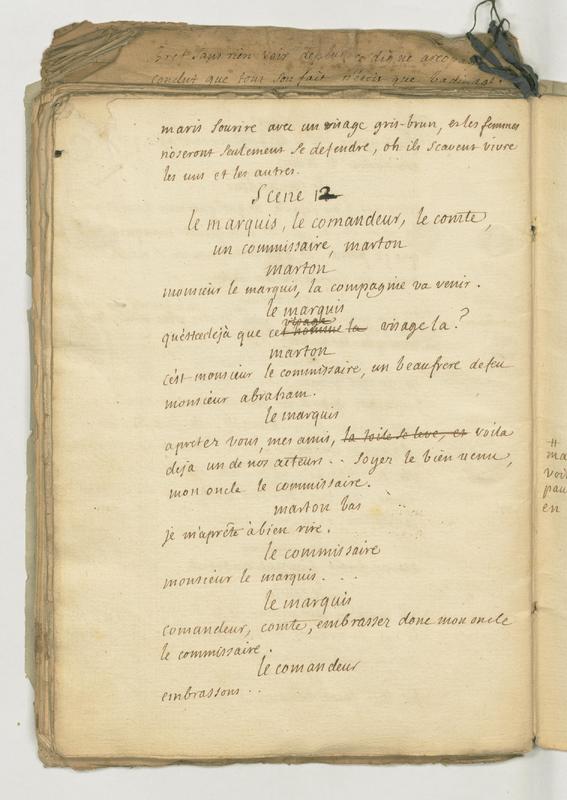 et sans rien voir
conclut que tout son fait n'étoit que badinage.
maris sourire avec un visage gris-brun, et les femmes
n'oseront seulement se defendre, oh ils scavent vivre
les uns et les autres.
Scene 12
le marquis, le comandeur, le comte,
un commissaire, marton
marton
monsieur le marquis, la compagnie va venir.
le marquis
visage
qu'est-ce deja que cet homme la visage la?
marton
c'est monsieur le commissaire, un beaufrere de feu
monsieur abraham.
le marquis
apretez vous, mes amis, la toile se leve, et voila
deja un de nos acteurs.. Soyez le bien venu,
mon oncle le commissaire.
marton bas
je m'aprête à bien rire.
le commissaire
monsieur le marquis. . .
le marquis
comandeur, comte, embrassez donc mon oncle
le commissaire.
le comandeur
embrassons . .
#
ma
voi
pau
en